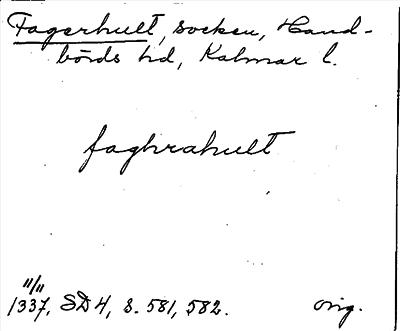 Fagerhult, socken, Hand-
börds hd, Kalmar l.
faghrahult
11/11
1337, SD 4, s. 581, 582. orig.